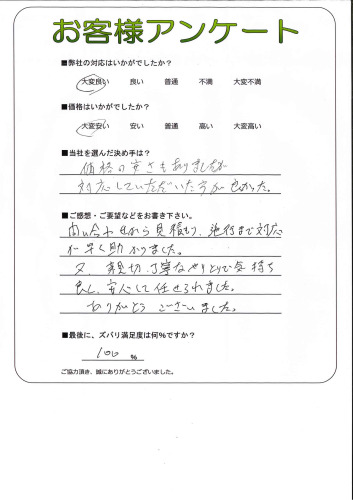 お客様アンケート
■弊社の対応はいかがでしたか?
大変良い 良い 普通 不満 大変不満
■価格はいかがでしたか?
大変安い 安い 普通 高い 大変高い
■当社を選んだ決め手は?
価格の安さもありましたが
対応していただいた方が良かった。
■ご感想・ご要望などをお書き下さい。
問い合わせから見積もり、施行まで対応
が早く助かりました。
又、親切、丁寧なやりとりで気持ち
良し、安心して任せられました。
ありがとうございました。
■最後に、ズバリ満足度は何%ですか?
100 %
ご協力頂き、誠にありがとうございました。